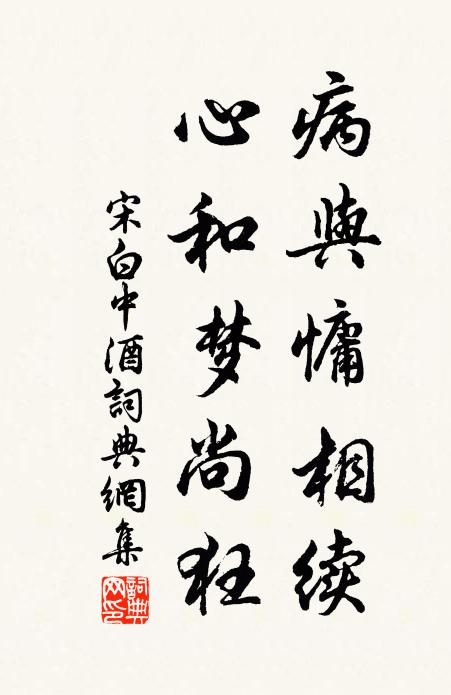 病與慵相续
心和梦尚狂
宋白中酒詞典網集
詞典网印